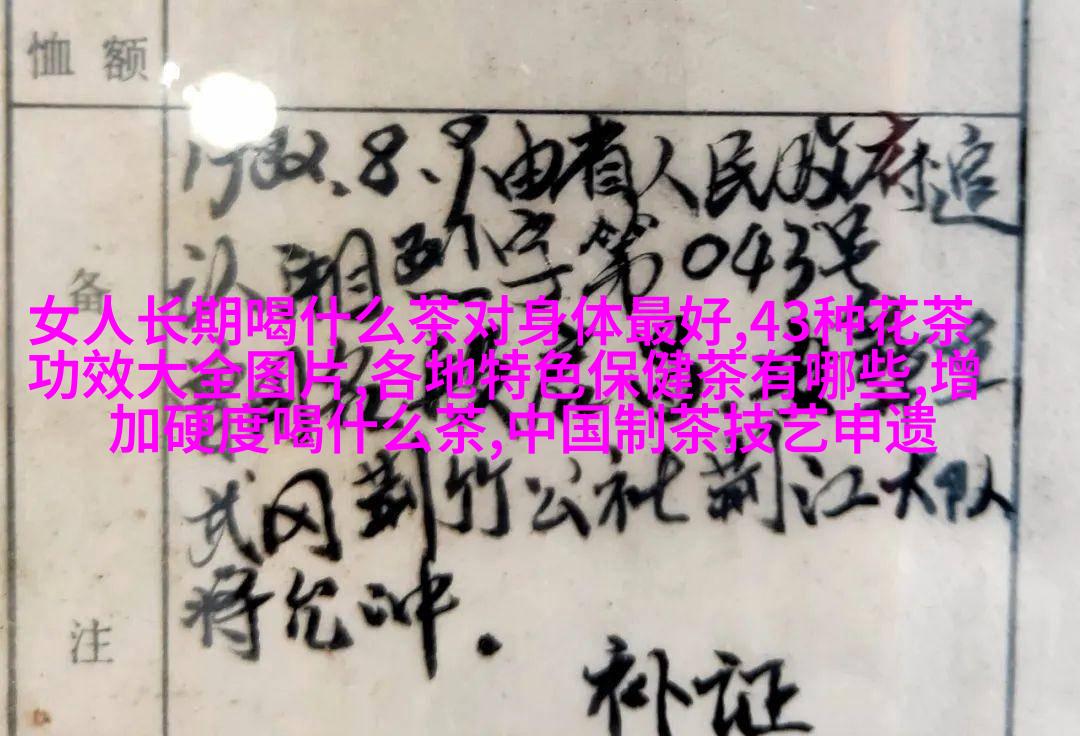 恤额
由省人民政府追
认湘烈字第043号
备
女人长期喝什么茶对身体最好,43种花茶
功效大全图片,各地特色保健茶有哪些,增
加硬度喝什么茶,中国制茶技艺申遗
武冈荆竹公社荆江大队
蒋允冲.
注
补证